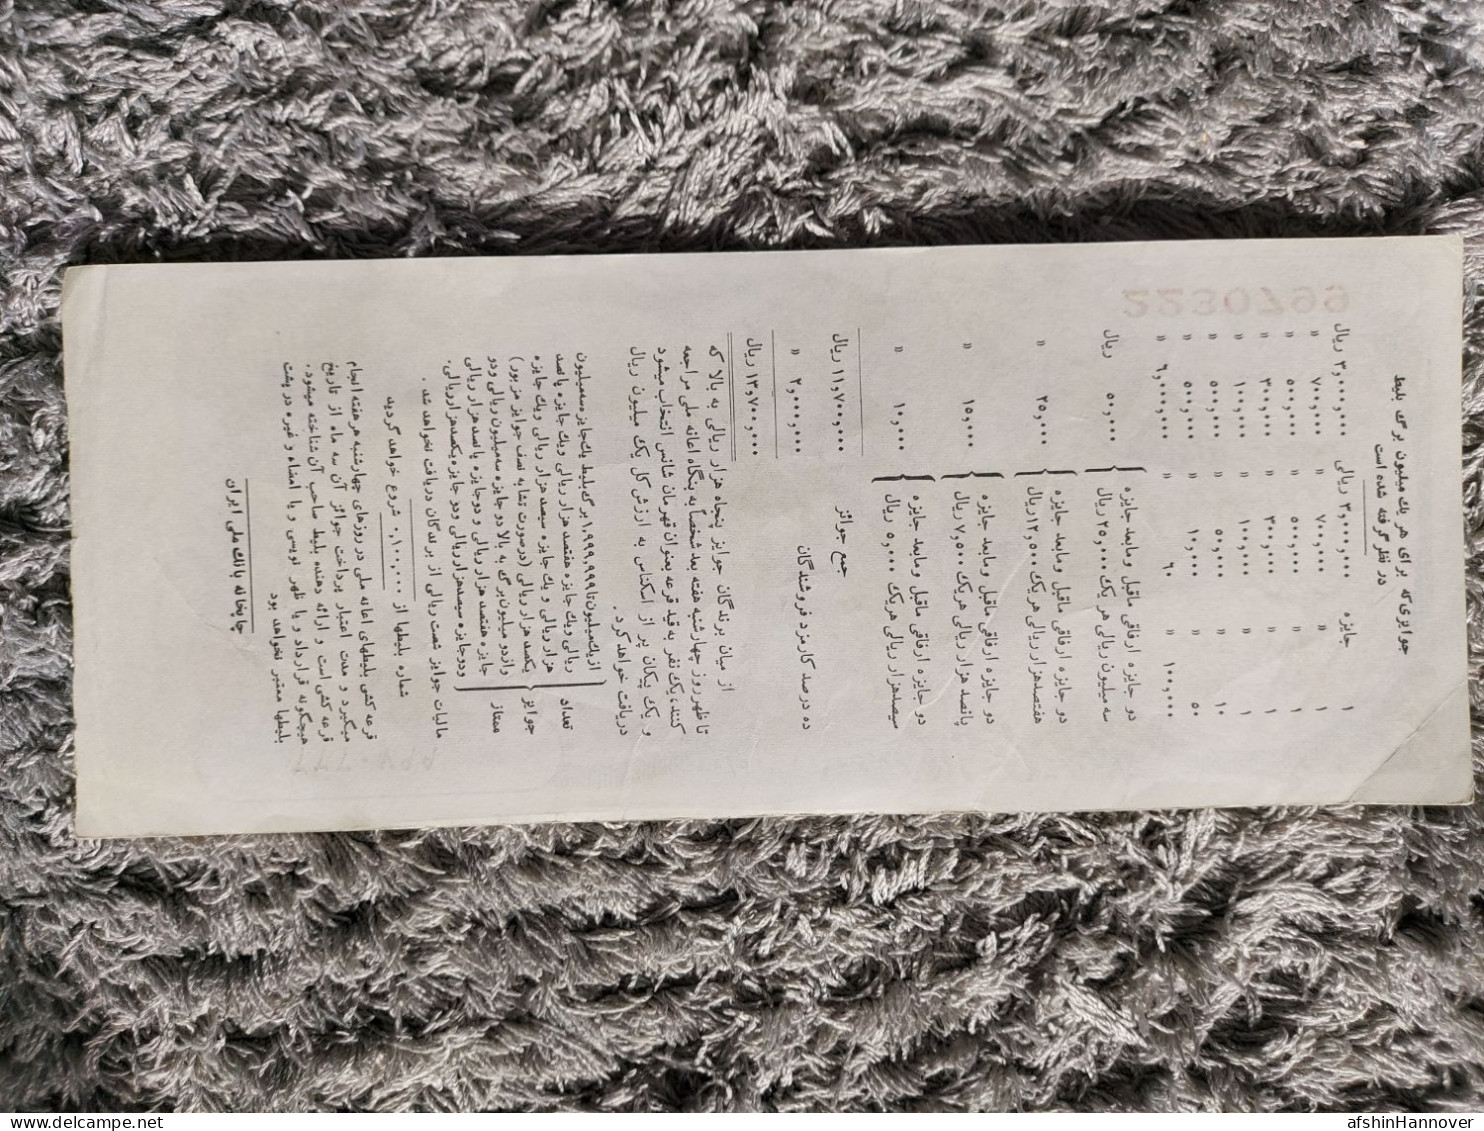 جوایزی که برای هر یک میلیون برگ بلیط
در نظر گرفته شده است
۱ جایزه ۳٫۰۰۰٫۰۰۰ ریالی ۳٫۰۰۰٫۰۰۰ ریال
۱ » ۷۰۰٫۰۰۰ » ۷۰۰٫۰۰۰ »
۱ » ۵۰۰٫۰۰۰ » ۵۰۰٫۰۰۰ »
۱ » ۳۰۰٫۰۰۰ » ۳۰۰٫۰۰۰ »
۱ » ۱۰۰٫۰۰۰ » ۱۰۰٫۰۰۰ »
۱۰ » ۵۰٫۰۰۰ » ۵۰۰٫۰۰۰ »
۵۰ » ۱۰٫۰۰۰ » ۵۰۰٫۰۰۰ »
۱۰۰٫۰۰۰ » ۶۰ » ۶٫۰۰۰٫۰۰۰ »
دو جایزه ارفاقی ماقبل و مابعد جایزه
سه میلیون ریالی هر یک ۲۵٫۰۰۰ ریال } ۵۰٫۰۰۰ ریال
دو جایزه ارفاقی ماقبل و مابعد جایزه
هفتصد هزار ریالی هر یک ۱۲٫۵۰۰ ریال } ۲۵٫۰۰۰ »
دو جایزه ارفاقی ماقبل و مابعد جایزه
پانصد هزار ریالی هر یک ۷٫۵۰۰ ریال } ۱۵٫۰۰۰ »
دو جایزه ارفاقی ماقبل و مابعد جایزه
سیصد هزار ریالی هر یک ۵٫۰۰۰ ریال } ۱۰٫۰۰۰ »
جمع جوائز ۱۱٫۷۰۰٫۰۰۰ ریال
ده درصد کارمزد فروشندگان ۲٫۰۰۰٫۰۰۰ »
۱۳٫۷۰۰٫۰۰۰ ریال
از میان برندگان جوایز پنجاه هزار ریالی به بالا که
تا ظهر روز چهارشنبه هفته بعد شخصاً به بنگاه اعانه ملی مراجعه
کنند، یک نفر به قید قرعه بعنوان قهرمان شانس انتخاب میشود
و یک پیکان پر از اسکناس به ارزش کل یک میلیون ریال
دریافت خواهد کرد.
تعداد جوائز ممتاز
از یک میلیون تا ۱٫۹۹۹٫۹۹۹ برگ بلیط یک جایزه سه میلیون
ریالی و یک جایزه هفتصد هزار ریالی و یک جایزه پانصد
هزار ریالی و یک جایزه سیصد هزار ریالی و یک جایزه
یکصد هزار ریالی (در صورت تشابه نصف جوایز مزبور)
و از دو میلیون برگ به بالا دو جایزه سه میلیون ریالی و دو
جایزه هفتصد هزار ریالی و دو جایزه پانصد هزار ریالی
و دو جایزه سیصد هزار ریالی و دو جایزه یکصد هزار ریالی.
مالیات جوایز شصت ریالی از برندگان دریافت نخواهد شد.
شماره بلیطها از ۰٫۱۰۰٫۰۰۰ شروع خواهد گردید
قرعه کشی بلیطهای اعانه ملی در روزهای چهارشنبه هر هفته انجام
میگیرد و مدت اعتبار پرداخت جوائز آن سه ماه از تاریخ
قرعه کشی است و ارائه دهنده بلیط صاحب آن شناخته میشود.
هیچگونه قرارداد و یا ظهر نویسی و یا امضاء و غیره در پشت
بلیطها معتبر نخواهد بود
چاپخانه بانک ملی ایران
2230799
afshinHannover
delcampe.net